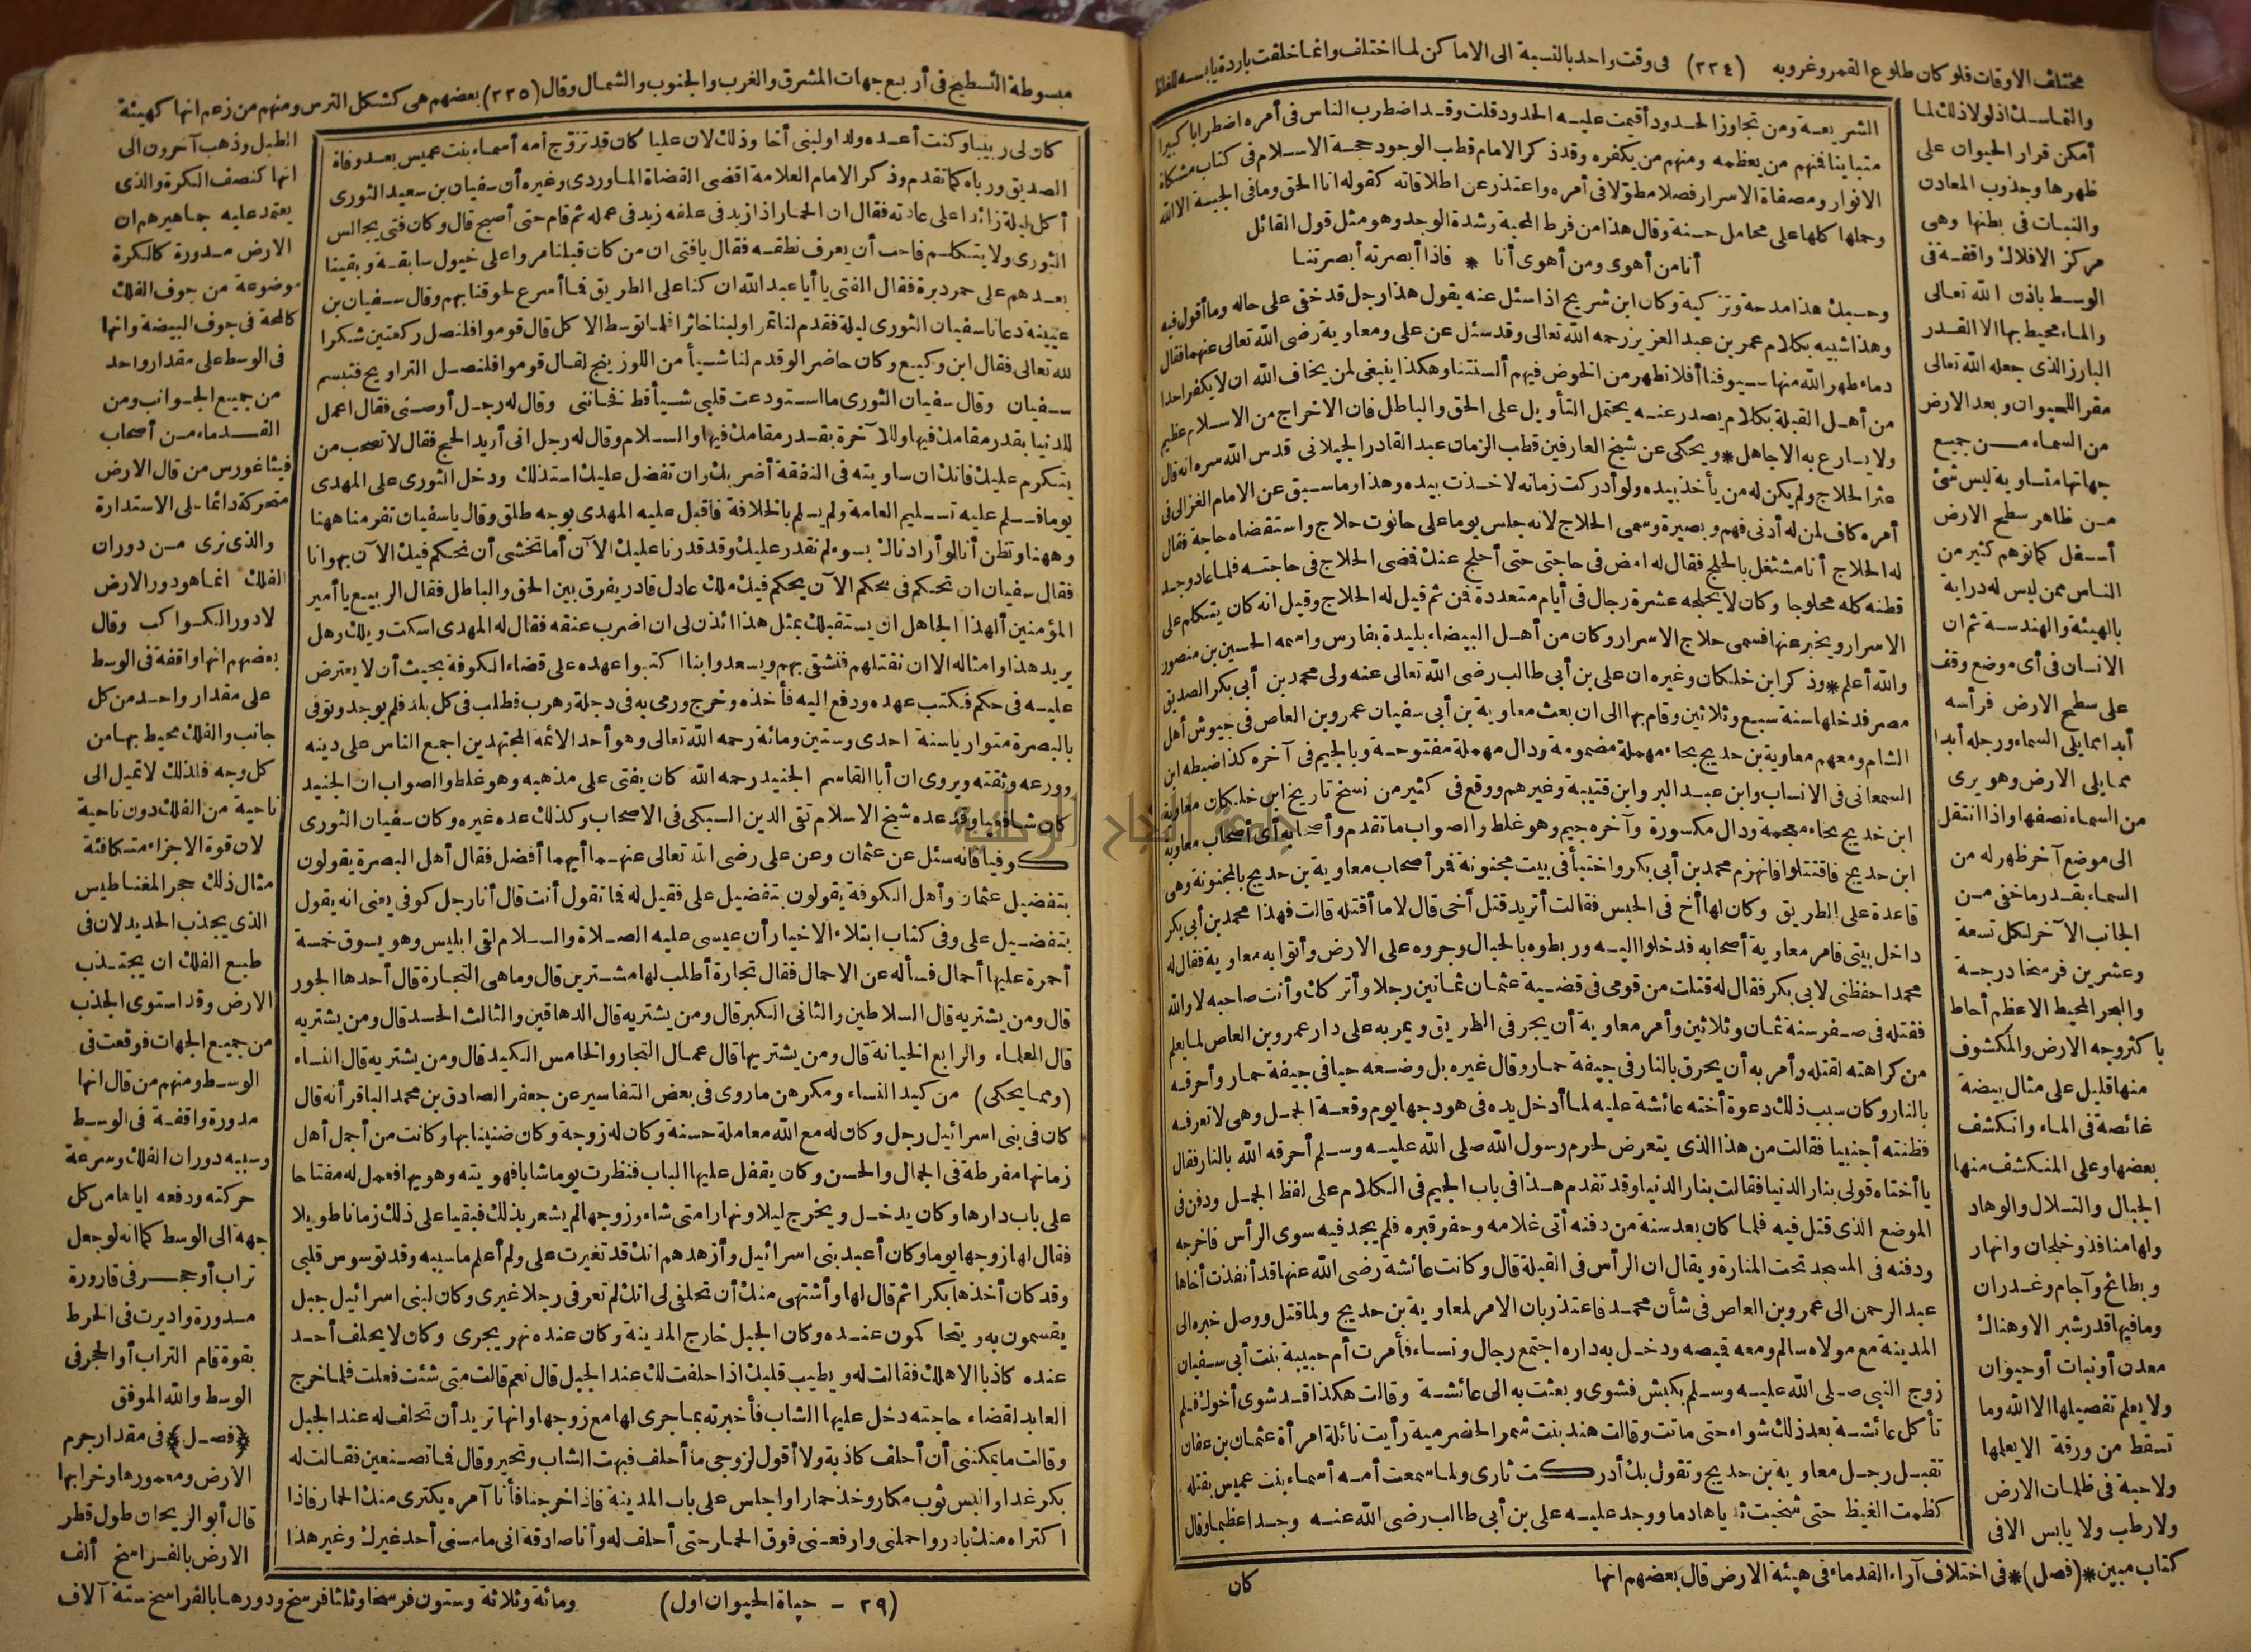 مختلف الاوقات فلو كان طلوع القمر وغروبه (٢٢٤) فى وقت واحد بالنسبة الى الاماكن لما اختلف وانما خلقت باردة يابسة للغلظ
والتماسك اذ لولا ذلك لما
أمكن قرار الحيوان على
ظهرها وجذوب المعادن
والنبات فى بطنها وهى
مركز الافلاك واقفة فى
الوسط باذن الله تعالى
والماء محيط بها الا القدر
البارز الذى جعله الله تعالى
مقر اللحيوان وبعد الارض
من السماء من جميع
جهاتها متساوية ليس شئ
من ظاهر سطح الارض
أسفل كما توهم كثير من
الناس ممن ليس له دراية
بالهيئة والهندسة ثم ان
الانسان فى أى موضع وقف
على سطح الارض فرأسه
أبدا مما يلى السماء ورجله أبدا
مما يلى الارض وهو يرى
من السماء نصفها واذا انتقل
الى موضع آخر ظهر له من
السماء بقدر ما خفى من
الجانب الآخر لكل تسعة
وعشرين فرسخا درجة
والبحر المحيط الاعظم أحاط
باكثر وجه الارض والمكشوف
منها قليل على مثال بيضة
غائصة فى الماء وانكشف
بعضها وعلى المنكشف منها
الجبال والتلال والوهاد
ولها منافذ وخلجان وانهار
وبطائح وآجام وغدران
وما فيها قدر شبر الا وهناك
معدن أو نبات أو حيوان
ولا يعلم تفصيلها الا الله وما
تسقط من ورقة الا يعلمها
ولا حبة فى ظلمات الارض
ولا رطب ولا يابس الا فى
كتاب مبين * (فصل) * فى اختلاف آراء القدماء فى هيئة الارض قال بعضهم انها
الشريعة ومن تجاوز الحدود أقيمت عليه الحدود قلت وقد اضطرب الناس فى أمره اضطرابا كبيرا
متباينا فنهم من يعظمه ومنهم من يكفره وقد ذكر الامام قطب الوجود حجة الاسلام فى كتاب مشكاة
الانوار ومصفاة الاسرار فصلا مطولا فى أمره واعتذر عن اطلاقاته كقوله انا الحق وما فى الجبة الا الله
وحملها كلها على محامل حسنة وقال هذا من فرط المحبة وشدة الوجد وهو مثل قول القائل
أنا من أهوى ومن أهوى أنا * فاذا أبصرته أبصرتنا
وحسبك هذا مدحة وتزكية وكان ابن شريح اذا سئل عنه يقول هذا رجل قد خفى على حاله وما أقول فيه
وهذا شبيه بكلام عمر بن عبد العزيز رحمه الله تعالى وقد سئل عن على ومعاوية رضى الله تعالى عنهما فقال
دماء طهر الله منها سيوفنا أفلا نطهر من الخوض فيهم ألسنتنا وهكذا ينبغى لمن يخاف الله ان لا يكفر احدا
من أهل القبلة بكلام يصدر عنه يحتمل التأويل على الحق والباطل فان الاخراج من الاسلام عظيم
ولا يسارع به الا جاهل * ويحكى عن شيخ العارفين قطب الزمان عبد القادر الجيلانى قدس الله سره انه قال
عثر الحلاج ولم يكن له من يأخذ بيده ولو أدركت زمانه لاخذت بيده وهذا وما سبق عن الامام الغزالى فى
أمره كاف لمن له أدنى فهم وبصيرة وسمى الحلاج لانه جلس يوما على حانوت حلاج واستقضاه حاجة فقال
له الحلاج أنا مشتغل بالحلج فقال له امض فى حاجتى حتى أحلج عنك فمضى الحلاج فى حاجته فلما عاد وجد
قطنه كله محلوجا وكان لا يحلجه عشرة رجال فى أيام متعددة فن ثم قيل له الحلاج وقيل انه كان يتكلم على
الاسرار ويخبر عنها فسمى حلاج الاسرار وكان من أهل البيضاء بليدة بفارس واسمه الحسين بن منصور
والله أعلم * وذكر ابن خلكان وغيره ان على بن أبى طالب رضى الله تعالى عنه ولى محمد بن أبى بكر الصديق
مصر فدخلها سنة سبع وثلاثين وقام بها الى ان بعث معاوية بن أبى سفيان عمرو بن العاص فى جيوش أهل
الشام ومعهم معاوية بن حديج بحاء مهملة مضمومة ودال مهملة مفتوحة وبالجيم فى آخره كذا ضبطه ابن
السمعانى فى الانساب وابن عبد البر وابن قتيبة وغيرهم ووقع فى كثير من نسخ تاريخ ابن خلكان معاوية
ابن خديج بخاء معجمة ودال مكسورة وآخره جيم وهو غلط والصواب ما تقدم وأصحابه أى أصحاب معاوية
ابن حديج فاقتتلوا فانهزم محمد بن أبى بكر واختبأ فى بيت مجنونة فمر أصحاب معاوية بن حديج بالمجنونة وهى
قاعدة على الطريق وكان لها أخ فى الحبس فقالت أتريد قتل أخى قال لا ما أقتله قالت فهذا محمد بن أبى بكر
داخل بيتى فامر معاوية أصحابه فدخلوا اليه وربطوه بالحبال وجروه على الارض وأتوا به معاوية فقال له
محمد احفظنى لابى بكر فقال له قتلت من قومى فى قضية عثمان ثمانين رجلا وأتركك وأنت صاحبه لا والله
فقتله فى صفر سنة ثمان وثلاثين وأمر معاوية أن يجر فى الطريق ويمر به على دار عمرو بن العاص لما يعلم
من كراهته لقتله وأمر به أن يحرق بالنار فى جيفة حمار وقال غيره بل وضعه حيا فى جيفة حمار وأحرقه
بالنار وكان سبب ذلك دعوة أخته عائشة عليه لما أدخل يده فى هودجها يوم وقعة الجمل وهى لا تعرفه
فظنته أجنبيا فقالت من هذا الذى يتعرض لحرم رسول الله صلى الله عليه وسلم أحرقه الله بالنار فقال
يا أختاه قولى بنار الدنيا فقالت بنار الدنيا وقد تقدم هذا فى باب الجيم فى الكلام على لفظ الجمل ودفن فى
الموضع الذى قتل فيه فلما كان بعد سنة من دفنه أتى غلامه وحفر قبره فلم يجد فيه سوى الرأس فاخرجه
ودفنه فى المسجد تحت المنارة ويقال ان الرأس فى القبلة قال وكانت عائشة رضى الله عنها قد أنفذت أخاها
عبد الرحمن الى عمرو بن العاص فى شأن محمد فاعتذر بان الامر لمعاوية بن حديج ولما قتل ووصل خبره الى
المدينة مع مولاه سالم ومعه قميصه ودخل به داره اجتمع رجال ونساء فأمرت أم حبيبة بنت أبى سفيان
زوج النبى صلى الله عليه وسلم بكبش فشوى وبعثت به الى عائشة وقالت هكذا قد شوى أخوك فلم
تأكل عائشة بعد ذلك شواء حتى ماتت وقالت هند بنت شمر الحضرمية رأيت نائلة امرأة عثمان بن عفان
تقبل رجل معاوية بن حديج وتقول بك أدركت ثارى ولما سمعت أمه أسماء بنت عميس بقتله
كظمت الغيظ حتى شخبت ثدياها دما ووجد عليه على بن أبى طالب رضى الله عنه وجدا عظيما وقال
كان
مبسوطة التسطيح فى أربع جهات المشرق والغرب والجنوب والشمال وقال (٢٢٥) بعضهم هى كشكل الترس ومنهم من زعم انها كهيئة
كان لى ربيبا وكنت أعده ولدا ولبنى أخا وذلك لان عليا كان قد تزوج أمه أسماء بنت عميس بعد وفاة
الصديق ورباه كما تقدم وذكر الامام العلامة اقضى القضاة الماوردى وغيره أن سفيان بن سعيد الثورى
أكل ليلة زائدا على عادته فقال ان الحمار اذا زيد فى علفه زيد فى عمله ثم قام حتى أصبح قال وكان فتى يجالس
الثورى ولا يتكلم فاحب أن يعرف نطقه فقال يا فتى ان من كان قبلنا مروا على خيول سابقة وبقينا
بعدهم على حمر دبرة فقال الفتى يا أبا عبد الله ان كنا على الطريق فما أسرع لحوقنا بهم وقال سفيان بن
عيينة دعانا سفيان الثورى ليلة فقدم لنا تمرا ولبنا خاثرا فلما توسط الاكل قال قوموا فلنصل ركعتين شكرا
لله تعالى فقال ابن وكيع وكان حاضرا لو قدم لنا شيأ من اللوزينج لقال قوموا فلنصل التراويح فتبسم
سفيان وقال سفيان الثورى ما استودعت قلبى شيأ قط فخاننى وقال له رجل أوصنى فقال اعمل
للدنيا بقدر مقامك فيها وللآخرة بقدر مقامك فيها والسلام وقال له رجل انى أريد الحج فقال لا تصحب من
يتكرم عليك فانك ان ساويته فى النفقة أضر بك وان تفضل عليك استذلك ودخل الثورى على المهدى
يوما فسلم عليه تسليم العامة ولم يسلم بالخلافة فاقبل عليه المهدى بوجه طلق وقال يا سفيان تفر منا ههنا
وههنا وتظن أنا لو أردناك بسوء لم نقدر عليك وقد قدرنا عليك الآن أما تخشى أن نحكم فيك الآن بهوانا
فقال سفيان ان تحكم فى يحكم الآن يحكم فيك ملك عادل قادر يفرق بين الحق والباطل فقال الربيع يا أمير
المؤمنين ألهذا الجاهل ان يستقبلك بمثل هذا ائذن لى ان اضرب عنقه فقال له المهدى اسكت ويلك وهل
يريد هذا وامثاله الا ان نقتلهم فنشقى بهم ويسعدوا بنا اكتبوا عهده على قضاء الكوفة بحيث أن لا يعترض
عليه فى حكم فكتب عهده ودفع اليه فأخذه وخرج ورمى به فى دجلة وهرب فطلب فى كل بلد فلم يوجد وتوفى
بالبصرة متواريا سنة احدى وستين ومائة رحمه الله تعالى وهو أحد الائمة المجتهدين اجمع الناس على دينه
وورعه وثقته ويروى ان أبا القاسم الجنيد رحمه الله كان يفتى على مذهبه وهو غلط والصواب ان الجنيد
كان شافعيا وقد عده شيخ الاسلام تقى الدين السبكى فى الاصحاب وكذلك عده غيره وكان سفيان الثورى
كوفيا فانه سئل عن عثمان وعن على رضى الله تعالى عنهما أيهما أفضل فقال أهل البصرة يقولون
بتفضيل عثمان وأهل الكوفة يقولون بتفضيل على فقيل له فما تقول أنت قال أنا رجل كوفى يعنى انه يقول
بتفضيل على وفى كتاب ابتلاء الاخيار أن عيسى عليه الصلاة والسلام لقى ابليس وهو يسوق خمسة
أحمرة عليها أحمال فسأله عن الاحمال فقال تجارة أطلب لها مشترين قال وما هى التجارة قال أحدها الجور
قال ومن يشتريه قال السلاطين والثانى الكبر قال ومن يشتريه قال الدهاقين والثالث الحسد قال ومن يشتريه
قال العلماء والرابع الخيانة قال ومن يشتريها قال عمال التجار والخامس الكيد قال ومن يشتريه قال النساء
(ومما يحكى) من كيد النساء ومكرهن ما روى فى بعض التفاسير عن جعفر الصادق بن محمد الباقر أنه قال
كان فى بنى اسرائيل رجل وكان له مع الله معاملة حسنة وكان له زوجة وكان ضنينا بها وكانت من أجمل أهل
زمانها مفرطة فى الجمال والحسن وكان يقفل عليها الباب فنظرت يوما شابا فهويته وهويها فعمل له مفتاحا
على باب دارها وكان يدخل ويخرج ليلا ونهارا متى شاء وزوجها لم يشعر بذلك فبقيا على ذلك زمانا طويلا
فقال لها زوجها يوما وكان أعبد بنى اسرائيل وأزهدهم انك قد تغيرت على ولم أعلم ما سببه وقد توسوس قلبى
وقد كان أخذها بكرا ثم قال لها وأشتهى منك أن تحلفى لى انك لم تعرفى رجلا غيرى وكان لبنى اسرائيل جبل
يقسمون به ويتحاكمون عنده وكان الجبل خارج المدينة وكان عنده نهر يجرى وكان لا يحلف أحد
عنده كاذبا الا هلك فقالت له ويطيب قلبك اذا حلفت لك عند الجبل قال نعم قالت متى شئت فعلت فلما خرج
العابد لقضاء حاجته دخل عليها الشاب فأخبرته بما جرى لها مع زوجها وانها تريد أن تحلف له عند الجبل
وقالت ما يمكننى أن أحلف كاذبة ولا أقول لزوجى ما أحلف فبهت الشاب وتحير وقال فما تصنعين فقالت له
بكر غدا والبس ثوب مكار وخذ حمارا واجلس على باب المدينة فاذا خرجنا فأنا آمره يكترى منك الحمار فاذا
اكتراه منك بادر واحملنى وارفعنى فوق الحمار حتى أحلف له وأنا صادقة انى ما مسنى أحد غيرك وغير هذا
الطبل وذهب آخرون الى
انها كنصف الكرة والذى
يعتمد عليه جماهيرهم ان
الارض مدورة كالكرة
موضوعة من جوف الفلك
كالمحة فى جوف البيضة وانها
فى الوسط على مقدار واحد
من جميع الجوانب ومن
القدماء من أصحاب
فيثاغورس من قال الارض
متحركة دائما على الاستدارة
والذى نرى من دوران
الفلك انما هو دور الارض
لا دور الكواكب وقال
بعضهم انها واقفة فى الوسط
على مقدار واحد من كل
جانب والفلك محيط بها من
كل وجه فلذلك لا تميل الى
ناحية من الفلك دون ناحية
لان قوة الاجزاء متكافئة
مثال ذلك حجر المغناطيس
الذى يجذب الحديد لان فى
طبع الفلك ان يجتذب
الارض وقد استوى الجذب
من جميع الجهات فوقعت فى
الوسط ومنهم من قال انها
مدورة واقفة فى الوسط
وسببه دوران الفلك وسرعة
حركته ودفعه اياها من كل
جهة الى الوسط كما انه لو جعل
تراب أو حجر فى قارورة
مدورة واديرت فى الخرط
بقوة قام التراب أو الحجر فى
الوسط والله الموفق
(فصل) فى مقدار جرم
الارض ومعمورها وخرابها
قال أبو الريحان طول قطر
الارض بالفراسخ ألف
ومائة وثلاثة وستون فرسخا وثلثا فرسخ ودورها بالفراسخ ستة آلاف
(٢٩ - حياة الحيوان اول)
جامعة النجاح الوطنية